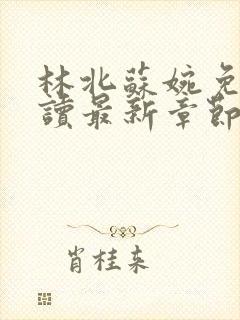 林北蘇婉免
讀最新章節
肖桂来